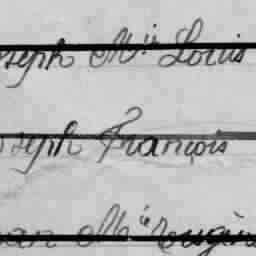 oseph M.ie Louis
oseph François
ean M.ie